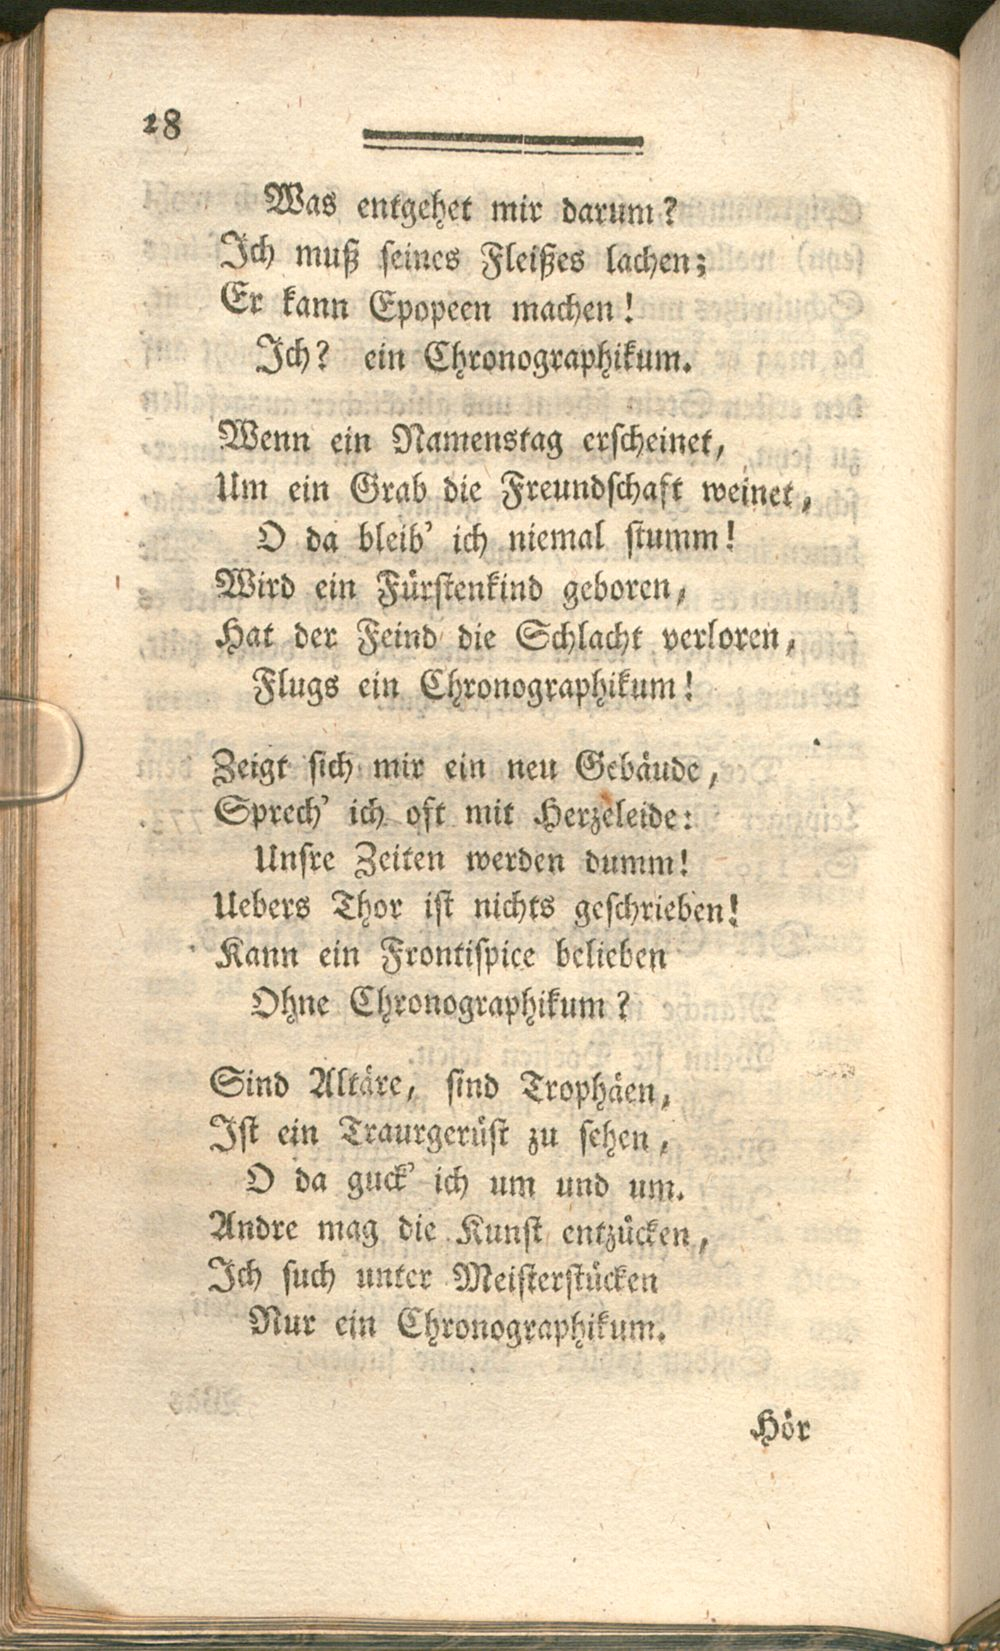 28
Was entgehet mir darum?
Ich muß ſeines Fleißes lachen;
Er kann Epopeen machen!
Ich? ein Chronographikum.
Wenn ein Namenstag erſcheinet,
Um ein Grab die Freundſchaft weinet,
O da bleib' ich niemal ſtumm!
Wird ein Fürſtenkind geboren,
Hat der Feind die Schlacht verloren,
Flugs ein Chronographikum!
Zeigt ſich mir ein neu Gebäude,
Sprech' ich oft mit Herzeleide:
Unſre Zeiten werden dumm!
Uebers Thor iſt nichts geſchrieben!
Kann ein Frontiſpice belieben
Ohne Chronographikum?
Sind Altäre, ſind Trophäen,
Iſt ein Traurgerüſt zu ſehen,
O da guck' ich um und um.
Andre mag die Kunſt entzücken,
Ich ſuch unter Meiſterſtücken
Nur ein Chronographikum.
Hör